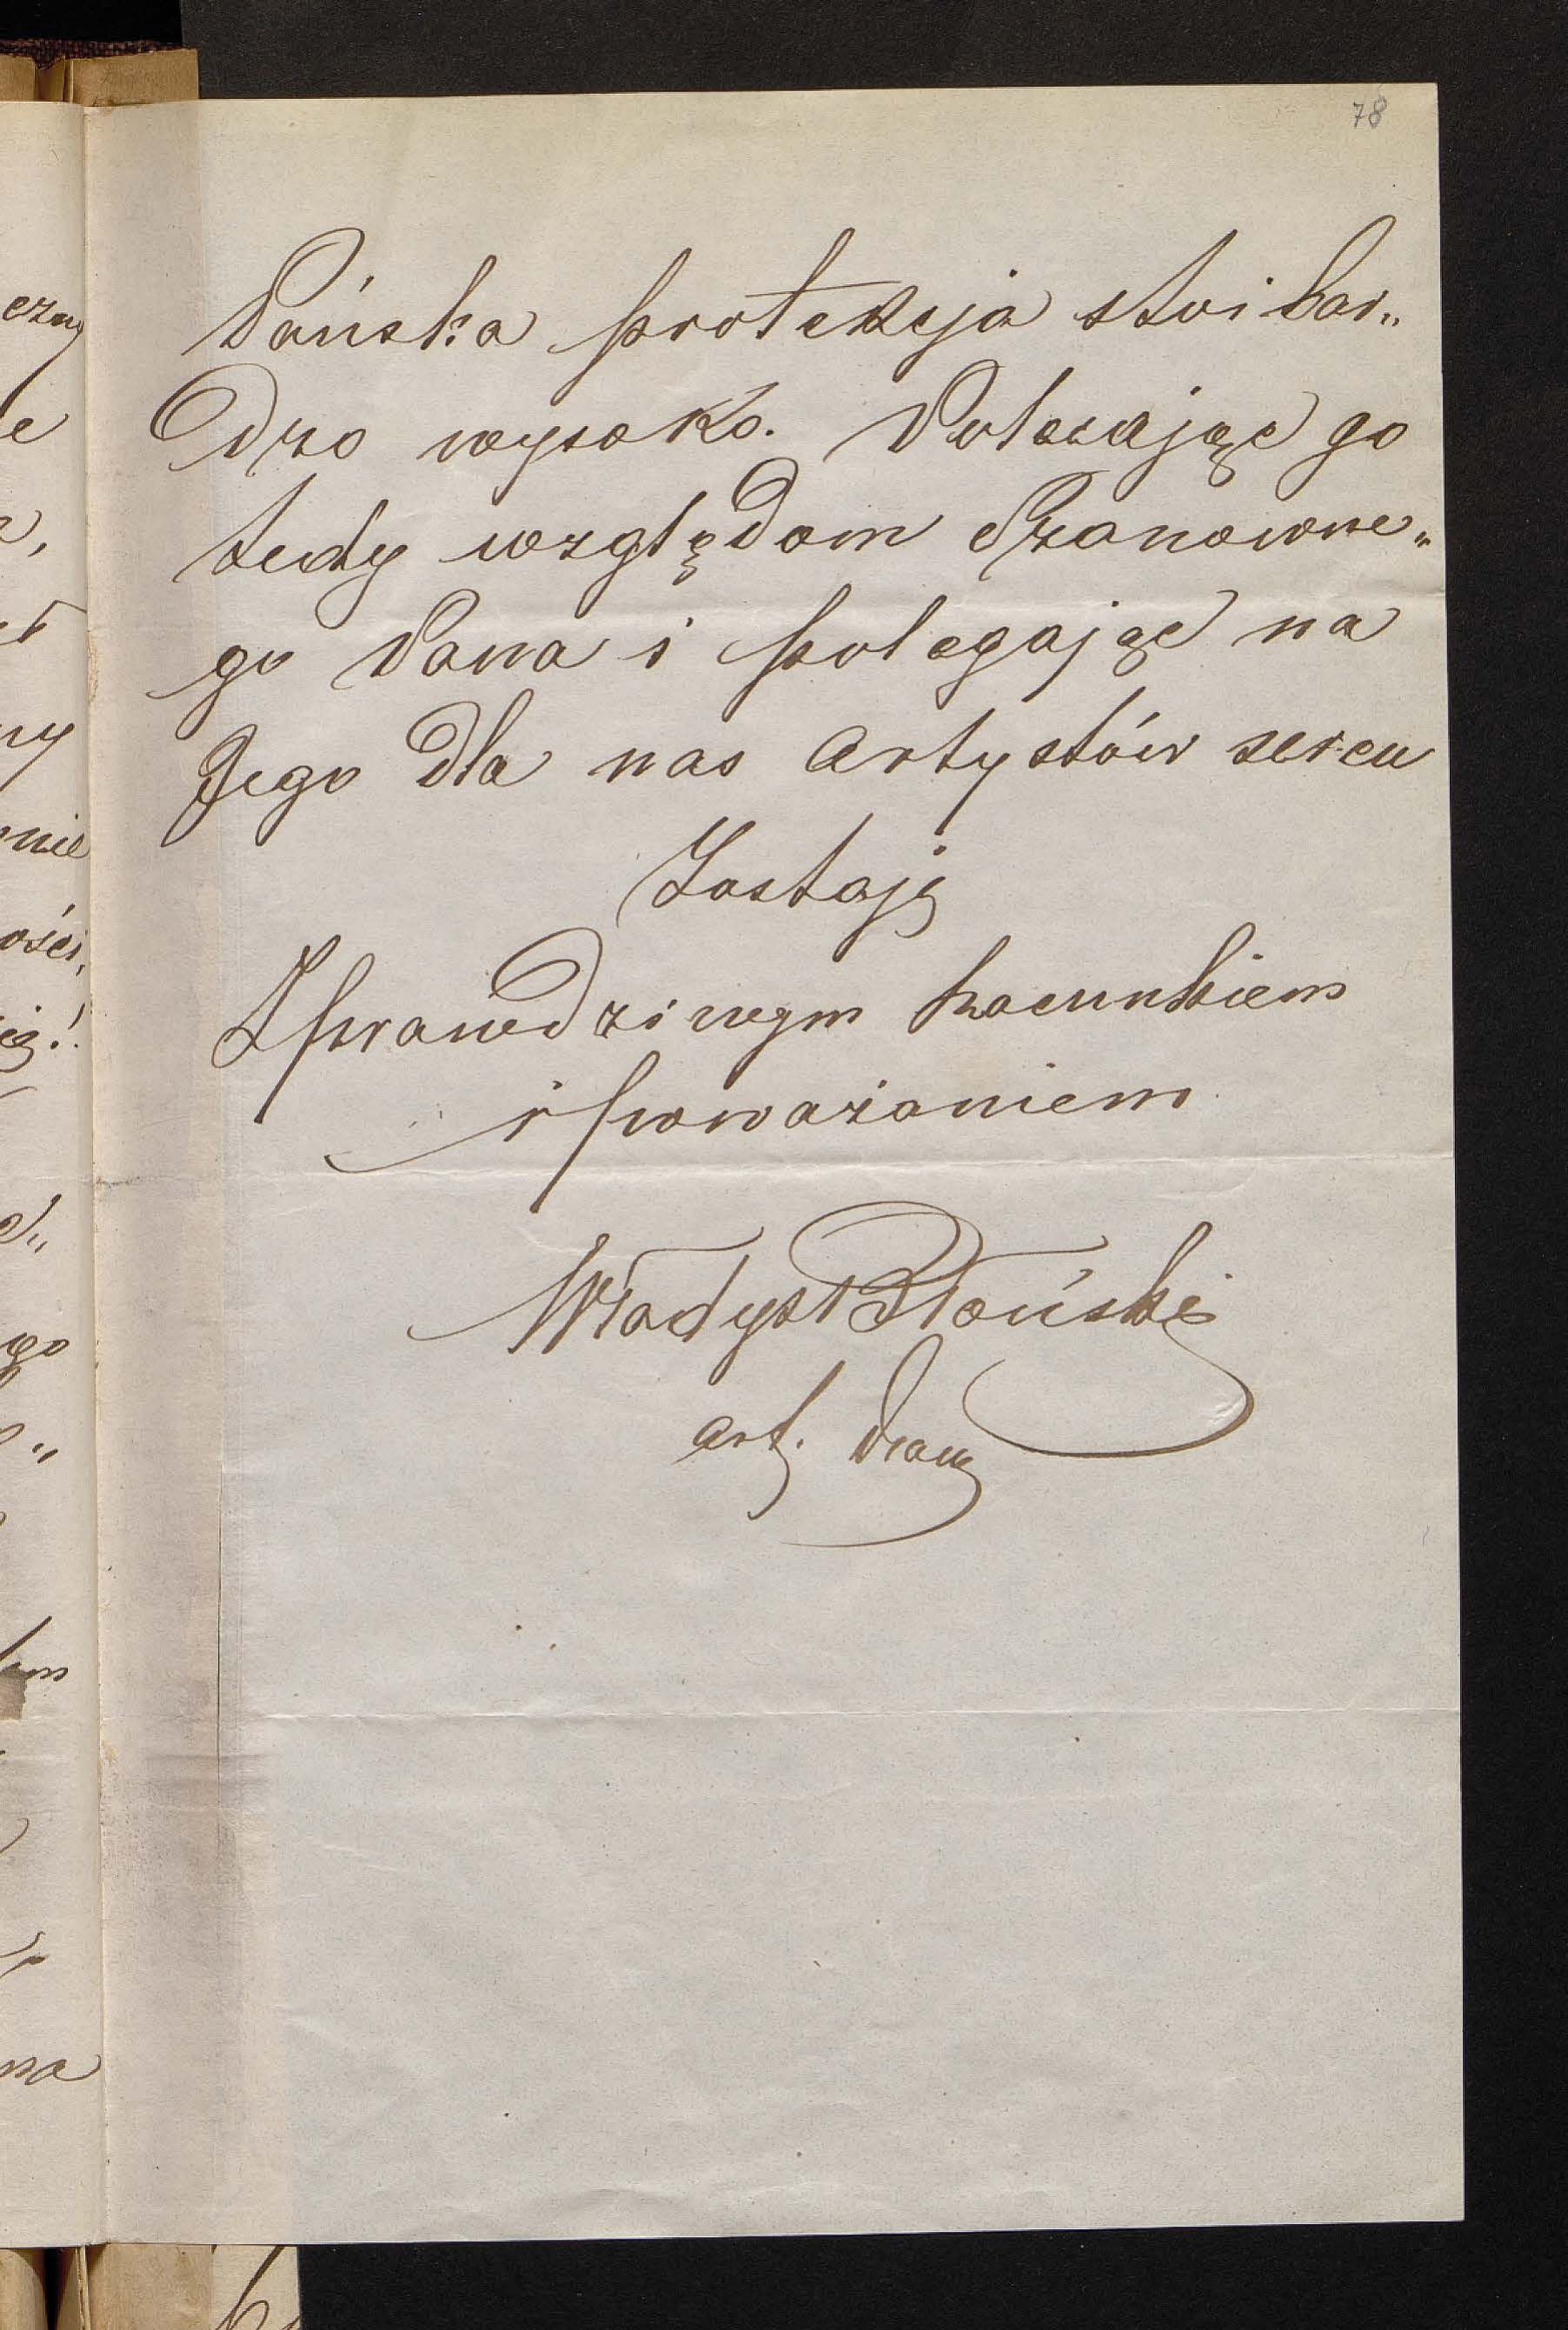 78
Pańska protekcja stoi bar„
dzo wysoko. Polecając go
tedy względom Szanowne„
go Pana i polegając na
Jego dla nas artystów sercu
Zostaję
Z prawdziwym szacunkiem
i poważaniem
Władysł Błoński
art. dram